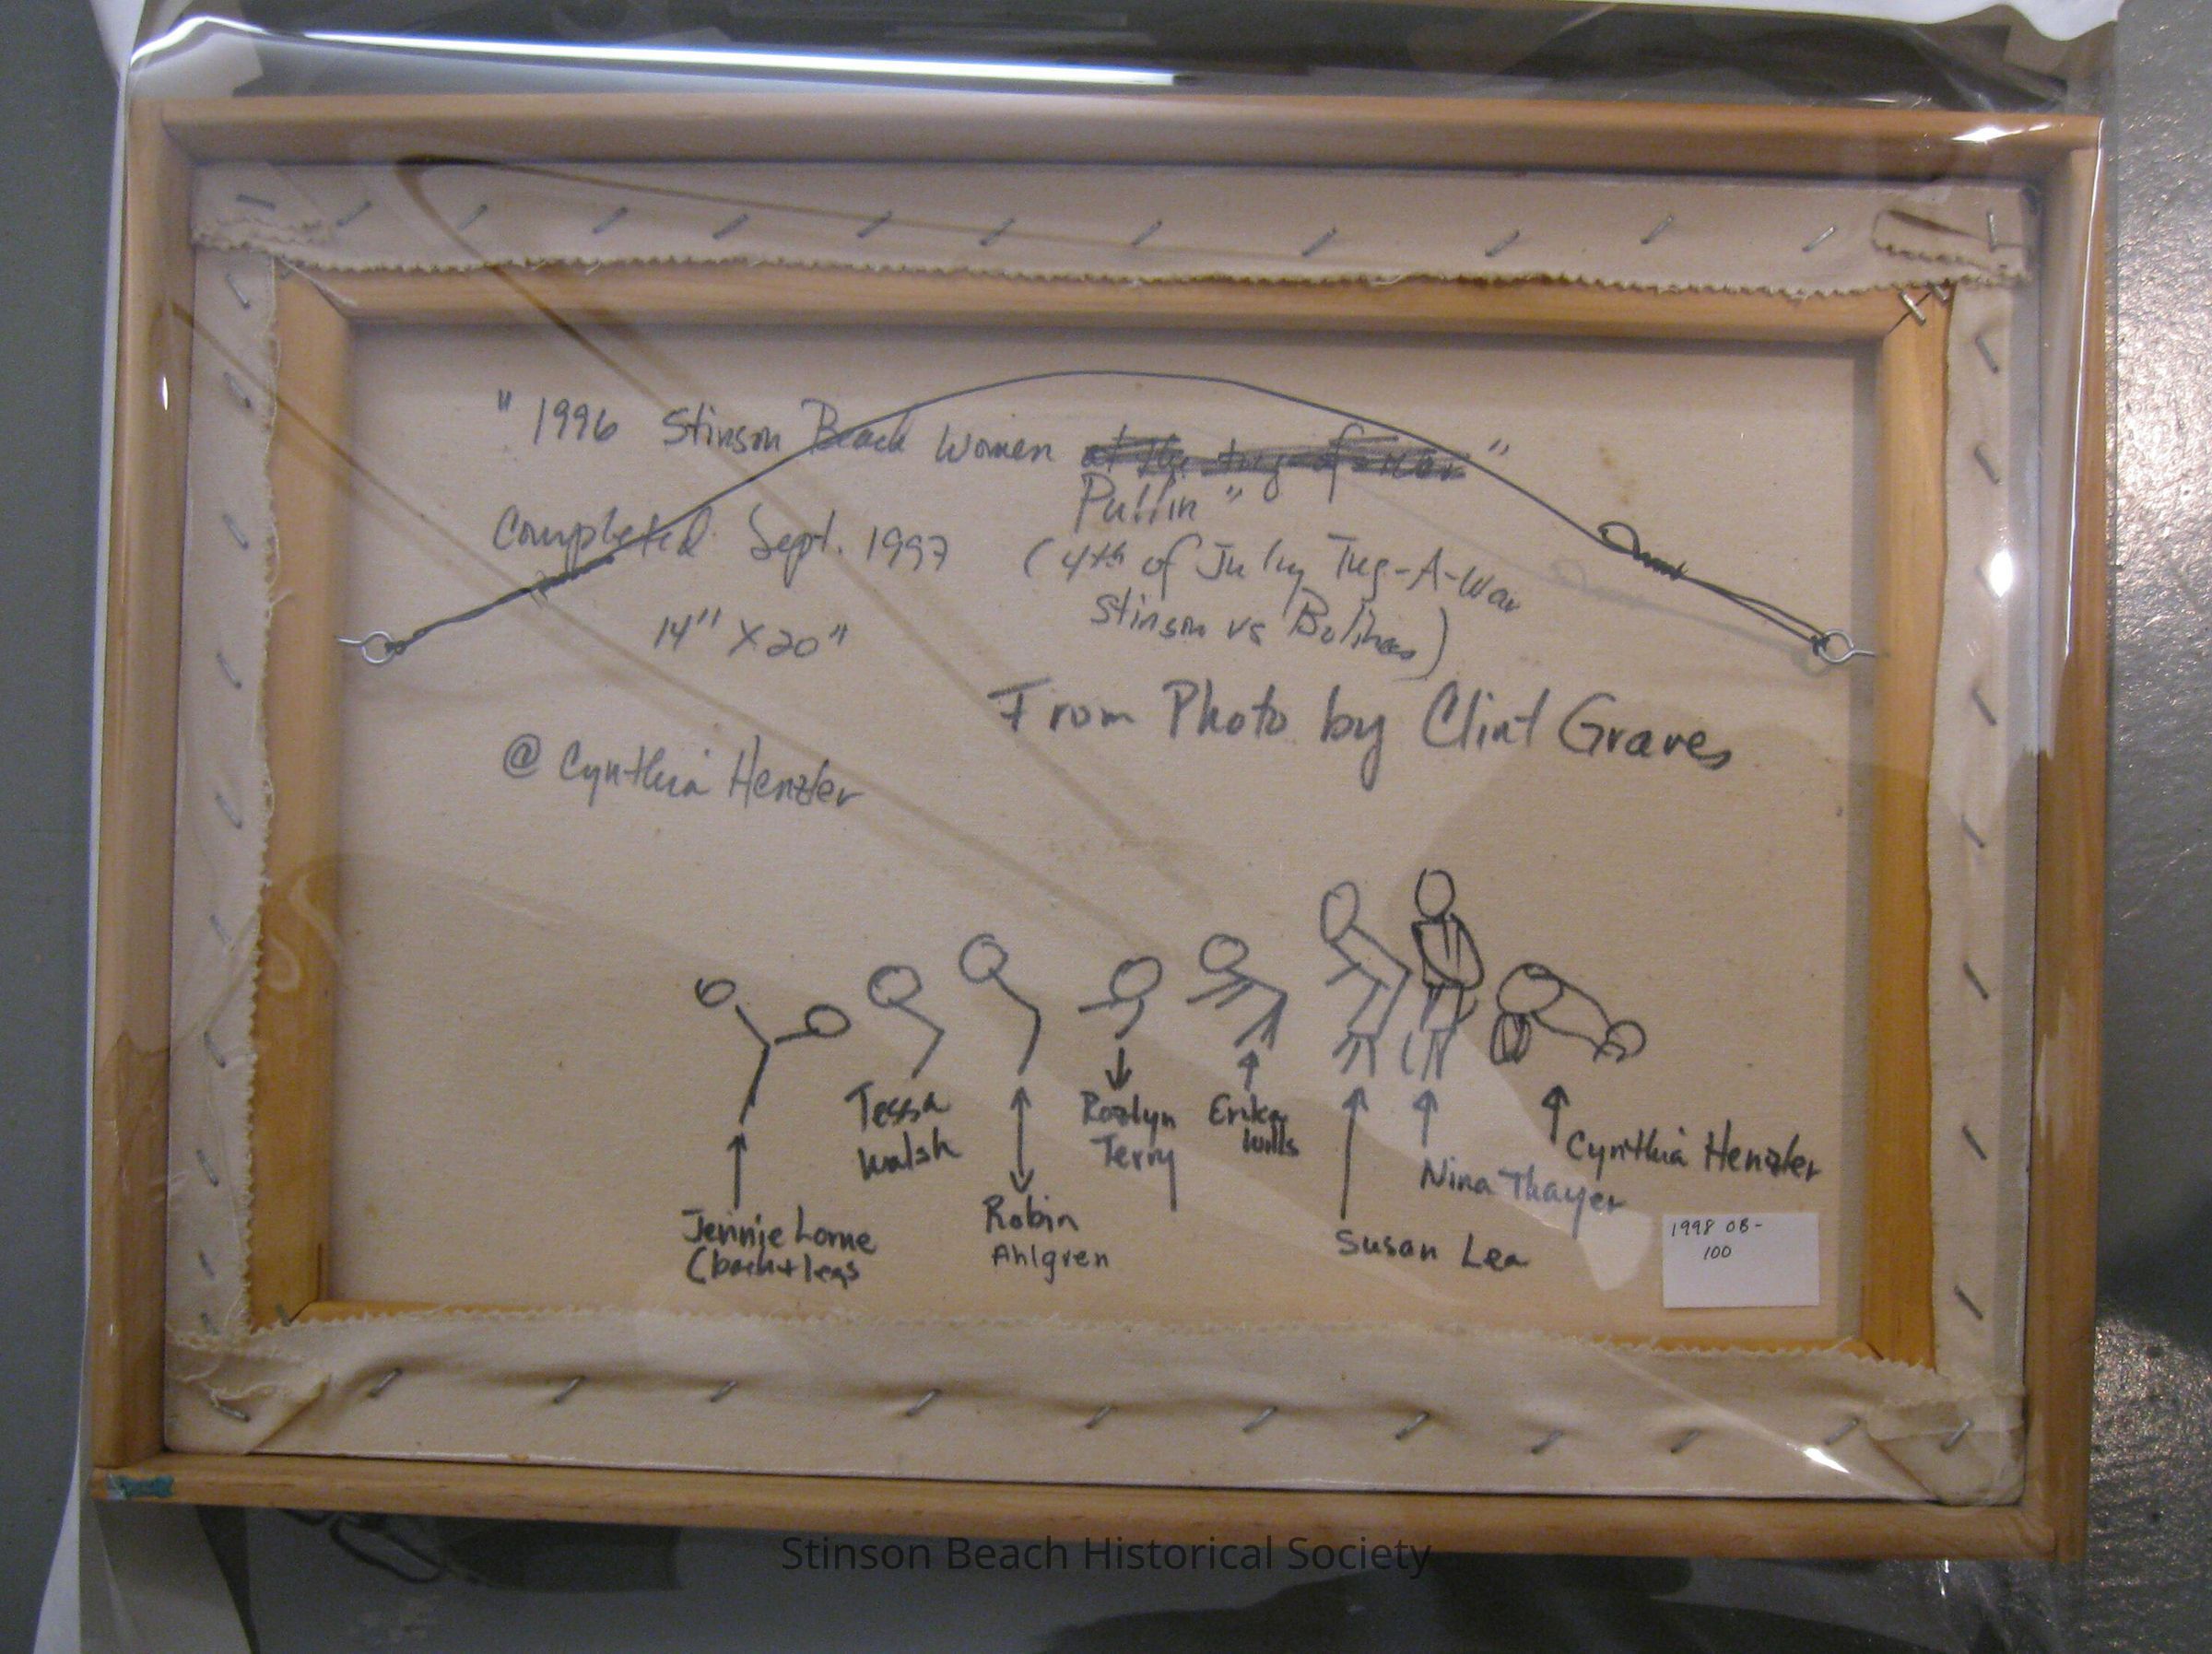 "1996 Stinson Beach Women at the tug-of-war"
Pullin"
Completed Sept. 1997
(4th of July Tug-A-War
Stinson vs Bolinas)
14" X 20"
From Photo by Clint Graves
@ Cynthia Henzler
Jennie Lorne
(back + legs
Tessa
Walsh
Robin
Ahlgren
Rozlyn
Terry
Erika
Wills
Susan Lea
Nina Thayer
Cynthia Henzler
1998 OB-
100
Stinson Beach Historical Society